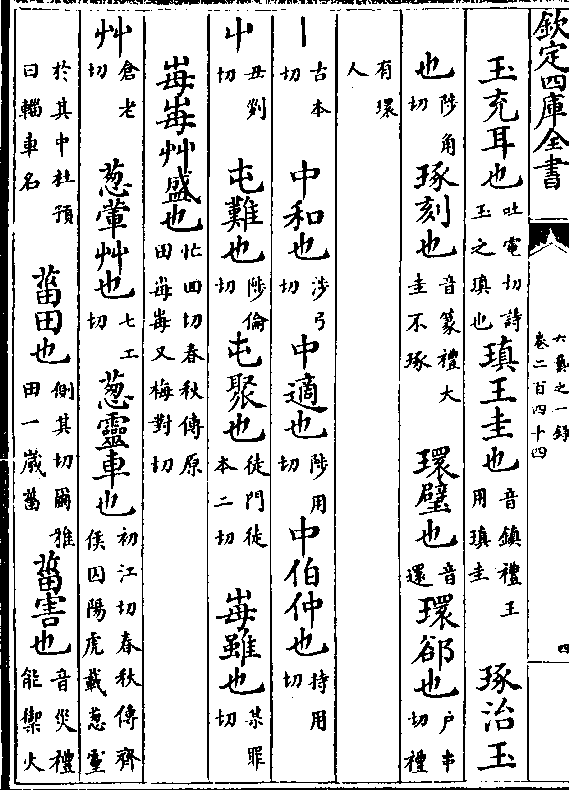 欽定四庫全書 六藝之一錄 卷二百四十四 四
玉充耳也 吐電切詩玉之瑱也 瑱王圭也 音鎮禮王用瑱圭 琢治玉
也 陟角切 琢刻也 音篆禮大圭不琢 環璧也 音還 環郤也 户串切禮
有環人
丨 古本切 中和也 涉弓切 中適也 陟用切 中伯仲也 持用切
屮 丑劉切 屯難也 陟倫切 屯聚也 徒門徒本二切 每雖也 某罪切
每每艸盛也 忙回切春秋傳原田每每又梅對切
艸 倉老切 葱葷艸也 七工切 葱靈車也 初江切春秋傳齊侯囚陽虎載葱靈
於其中杜預曰輜車名 葘田也 側其切爾雅田一歲葘 葘害也 音災禮能禦火